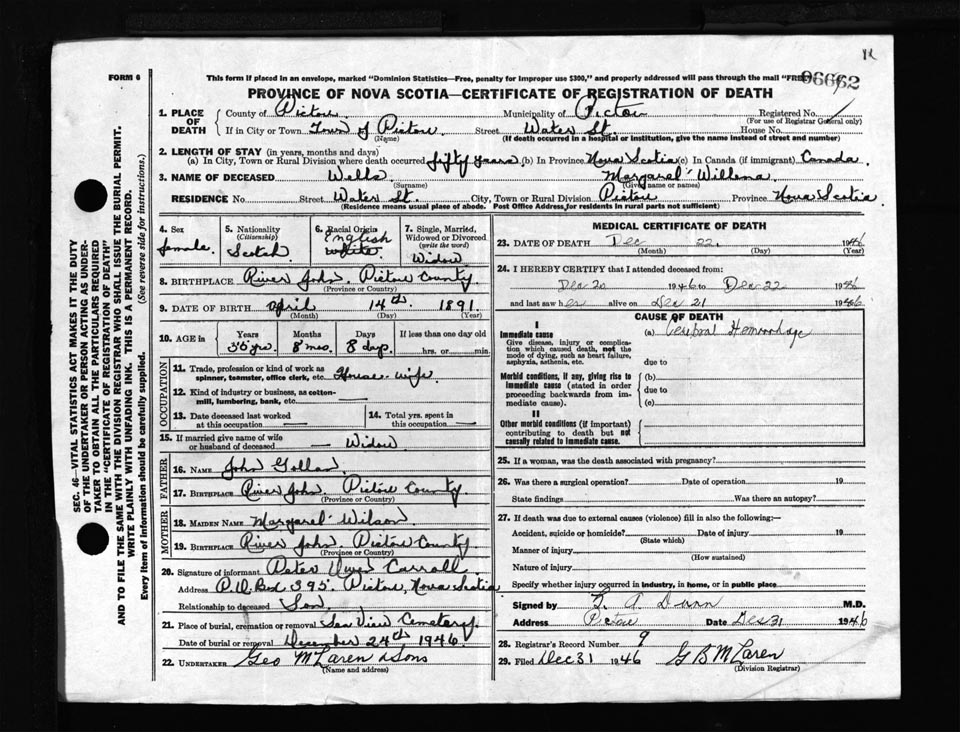 12
FORM 6
This form if placed in an envelope, marked "Dominion Statistics—Free, penalty for improper use $300," and properly addressed will pass through the mail "FREE"
06662
PROVINCE OF NOVA SCOTIA—CERTIFICATE OF REGISTRATION OF DEATH
1. PLACE OF DEATH County of Pictou Municipality of Pictou Registered No.
(For use of Registrar General only)
If in City or Town Town of Pictou Street Water St. House No.
(Name) (If death occurred in a hospital or institution, give the name instead of street and number)
2. LENGTH OF STAY (in years, months and days)
(a) In City, Town or Rural Division where death occurred fifty years (b) In Province Nova Scotia (c) In Canada (if immigrant) Canada.
3. NAME OF DECEASED Wells Margaret Willena
(Surname) (Given name or names)
RESIDENCE No. Street Water St. City, Town or Rural Division Pictou Province Nova Scotia
(Residence means usual place of abode. Post Office Address for residents in rural parts not sufficient)
4. Sex female
5. Nationality (Citizenship) Scotch
6. Racial Origin English white
7. Single, Married, Widowed or Divorced (write the word) Widow
8. BIRTHPLACE River John. Pictou County.
(Province or Country)
9. DATE OF BIRTH April 14th 1891
(Month) (Day) (Year)
10. AGE in Years Months Days If less than one day old
8 mos. 8 days. hrs. or min.
OCCUPATION
11. Trade, profession or kind of work as spinner, teamster, office clerk, etc. House-wife
12. Kind of industry or business, as cotton-mill, lumbering, bank, etc.
13. Date deceased last worked at this occupation
14. Total yrs. spent in this occupation
15. If married give name of wife or husband of deceased Widow
FATHER
16. NAME John Gollan.
17. BIRTHPLACE River John. Pictou County.
(Province or Country)
MOTHER
18. MAIDEN NAME Margaret Wilson.
19. BIRTHPLACE River John. Pictou County.
(Province or Country)
20. Signature of informant Peter Carroll.
Address P.O. Box 395. Pictou, Nova Scotia
Relationship to deceased Son.
21. Place of burial, cremation or removal Sea View Cemetery.
Date of burial or removal December 24th 1946
22. UNDERTAKER Geo McLaren & Sons
(Name and address)
MEDICAL CERTIFICATE OF DEATH
23. DATE OF DEATH Dec 22. 1946
(Month) (Day) (Year)
24. I HEREBY CERTIFY that I attended deceased from:
Dec 20 1946 to Dec 22 1946
and last saw her alive on Dec 21 1946
CAUSE OF DEATH
I
Immediate cause (a) Cerebral Hemorrhage
Give disease, injury or complication which caused death, not the mode of dying, such as heart failure, asphyxia, asthenia, etc.
due to
Morbid conditions, if any, giving rise to immediate cause (stated in order proceeding backwards from immediate cause).
(b)
due to
(c)
II
Other morbid conditions (if important) contributing to death but not causally related to immediate cause.
25. If a woman, was the death associated with pregnancy?
26. Was there a surgical operation? Date of operation 19
State findings Was there an autopsy?
27. If death was due to external causes (violence) fill in also the following:—
Accident, suicide or homicide? Date of injury 19
(State which)
Manner of injury
(How sustained)
Nature of injury
Specify whether injury occurred in industry, in home, or in public place
Signed by Dunn M.D.
Address Pictou Date Dec 31 1946
28. Registrar's Record Number 9
29. Filed Dec 31 1946 G B McLaren
(Division Registrar)
SEC. 46—VITAL STATISTICS ACT MAKES IT THE DUTY
OF THE UNDERTAKER OR PERSON ACTING AS UNDER-
TAKER TO OBTAIN ALL THE PARTICULARS REQUIRED
IN THE "CERTIFICATE OF REGISTRATION OF DEATH"
AND TO FILE THE SAME WITH THE DIVISION REGISTRAR WHO SHALL ISSUE THE BURIAL PERMIT.
WRITE PLAINLY WITH UNFADING INK. THIS IS A PERMANENT RECORD.
Every item of information should be carefully supplied. (See reverse side for instructions.)